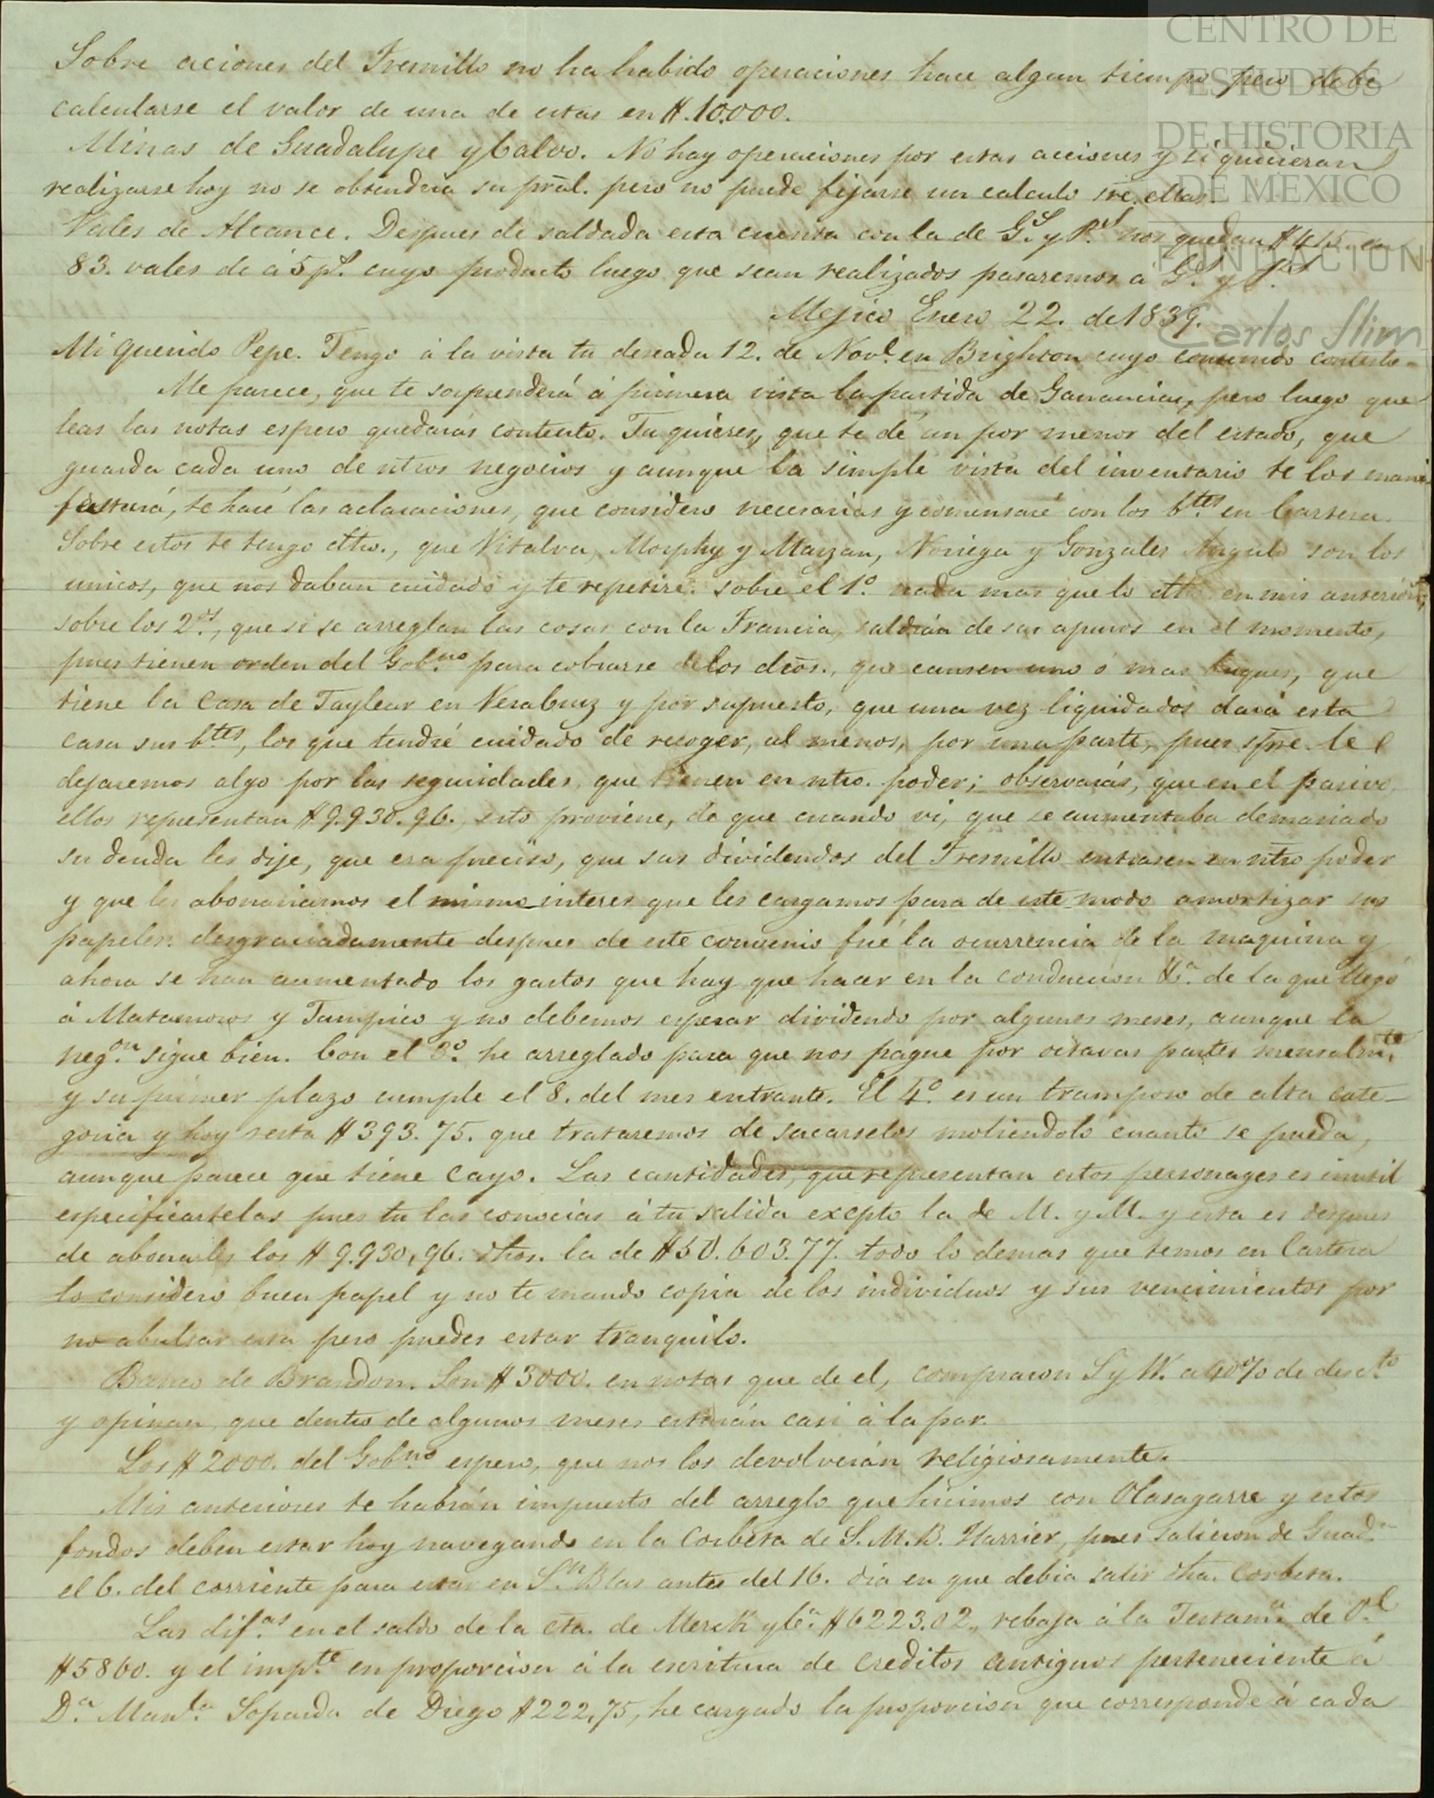 CENTRO DE
ESTUDIOS
DE HISTORIA
DE MEXICO
FUNDACION
Carlos Slim
Sobre aciones del Fresnillo no ha habido operaciones hace algun tiempo pero debe
calcularse el valor de una de estas en $.10.000.
Minas de Guadalupe y Calvo. No hay operaciones por estas acciones y si quisieran
realizarse hoy no se obtendria su pral. pero no puede fijarse un calculo sre. ellas.
Vales de Alcance. Despues de saldada esta cuenta con la de G.s y P.s nos quedan $415. en
83. vales de á 5 p.s cuyo producto luego que sean realizados pasaremos a G.s y P.s
Mejico Enero 22. de 1839.
Mi querido Pepe. Tengo á la vista tu deseada 12. de Nov.e en Brighton cuyo contenido contesto.
Me parece, que te sorprenderá á primera vista la partida de Ganancias, pero luego que
leas las notas espero quedarás contento. Tu quieres, que te dé un por menor del estado, que
guarda cada uno de ntros negocios y aunque la simple vista del inventario te los mani-
festará, te haré las aclaraciones, que considero necesarias y comensaré con los b.tes en Cartera.
Sobre estos te tengo dho., que Vitalva, Morphy y Marzan, Noriega y Gonzales Angulo son los
unicos, que nos daban cuidado y te repetiré: sobre el 1.º nada mas que lo dho en mis anteriores,
sobre los 2.os, que si se arreglan las cosas con la Francia, saldrán de sus apuros en el momento,
pues tienen orden del Gob.no para cobrarse de los dros., que causen uno ó mas buques, que
tiene la Casa de Tayleur en Veracruz y por supuesto, que una vez liquidados dará esta
casa sus b.tes, los que tendré cuidado de recoger, al menos, por una parte, pues spre. le
dejaremos algo por las seguridades, que tienen en ntro. poder; observarás, que en el pasivo
ellos representan $9.930.96. esto proviene, de que cuando vi, que se aumentaba demasiado
su deuda les dije, que era preciso, que sus dividendos del Fresnillo entrasen en ntro poder
y que les abonariamos el mismo interes que les cargamos para de este modo amortizar sus
papeles: desgraciadamente despues de este convenio fué la ocurrencia de la maquina y
ahora se han aumentado los gastos que hay que hacer en la conduccion &.a de la que llegó
á Matamoros y Tampico y no debemos esperar dividendo por algunos meses, aunque la
neg.on sigue bien. Con el 3.º he arreglado para que nos pague por octavas partes mensalm.te
y su primer plazo cumple el 8. del mes entrante. El 4.º es un tramposo de alta cate-
goria y hoy resta $393.75. que trataremos de sacarselos moliendolo cuanto se pueda,
aunque parece que tiene cayo. Las cantidades, que representan estos personages es inutil
especificartelas pues tu las conocias á tu salida excepto la de M. y M. y esta es despues
de abonarles los $9.930,96. dhos. la de $50.603.77. todo lo demas que temos en Cartera
lo considero buen papel y no te mando copia de los individuos y sus vencimientos por
no abultar esta pero puedes estar tranquilo.
Banco de Brandon. Son $3000. en notas que de el, compraron S y W. a 40% de desc.to
y opinan, que dentro de algunos meses estarán casi á la par.
Los $2000. del Gob.no espero, que nos los devolverán religiosamente.
Mis anteriores te habrán impuesto del arreglo que hicimos con Olasagarre y estos
fondos deben estar hoy navegando en la Corbeta de S.M.B. Harrier, pues salieron de Guad.a
el 6. del corriente para estar en S.n Blas antes del 16. dia en que debia salir dha. Corbeta.
Las dif.as en el saldo de la cta. de Merck y C.a $6223.02., rebaja á la Testam.a de O.l
$5860. y el imp.te en proporcion á la escritura de creditos antiguos perteneciente á
D.a Man.la Soparda de Diego $222,75, he cargado la proporcion que corresponde á cada